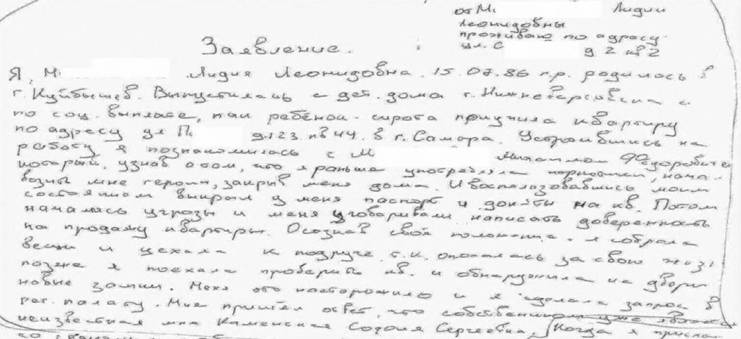 от М. Лидии
Леонидовны
проживаю по адресу
ул. С д. 2 кв 2
Заявление.
Я, М Лидия Леонидовна. 15.07.86 г.р. родилась в
г. Куйбышев. Выпустилась с дет. дома г. Нижневартовска и
по соц. выплате, как ребёнок-сирота получила квартиру
по адресу ул П д 123 кв 44. в г. Самара. Устроившись на
работу я познакомилась с М Михаилом Фёдоровичем
который, узнав о том, что я раньше употребляла наркотики, начал
возить мне героин, закрыв меня дома. И воспользовавшись моим
состоянием выкрал у меня паспорт и док-ты на кв. Потом
начались угрозы и меня уговаривали написать доверенность
на продажу квартиры. Осознав своё положение я собрала
вещи и уехала к подруге т.к. опасалась за свою жизнь
позже я поехала проверить кв. и обнаружила на двери
новые замки. Меня это насторожило и я сделала запрос в
рег. палату. Мне пришёл ответ, что собственником уже является
неизвестная мне Каменская Сергеевна. Когда я